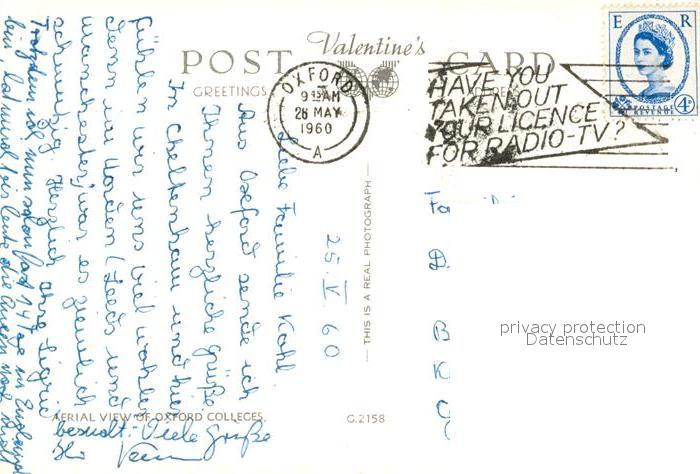 POST Valentine's CARD
GREETINGS
OXFORD
9 15 AM
26 MAY
1960
A
HAVE YOU
TAKEN OUT
YOUR LICENCE
FOR RADIO-TV?
E R
POSTAGE
REVENUE
4D
25. V. 60
Liebe Familie Kahl.
Aus Oxford sende ich
Ihnen herzliche Grüße
In Cheltenham und hier
fühlen wir uns viel wohler
denn im Norden (Leeds und
Manchester) war es ziemlich
schmutzig. Herzlich Ihre Sigrid
Trotzdem ich nun schon fast 14 Tage in England
bin, hat mich bis heute die Queen noch nicht
besucht. Viele Grüße
Ihr
THIS IS A REAL PHOTOGRAPH
Fa
B
K
AERIAL VIEW OF OXFORD COLLEGES.
G.2158
privacy protection
Datenschutz